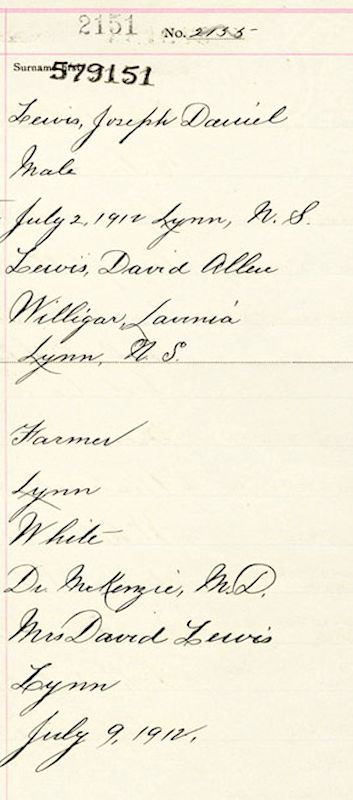 2151 No. 2135
Surname first
579151
Lewis, Joseph Daniel
Male
July 2, 1912 Lynn, N. S.
Lewis, David Allen
Willigar, Lavinia
Lynn, N. S.
Farmer
Lynn
White
Dr. McKenzie, M.D.
Mrs David Lewis
Lynn
July 9, 1912.